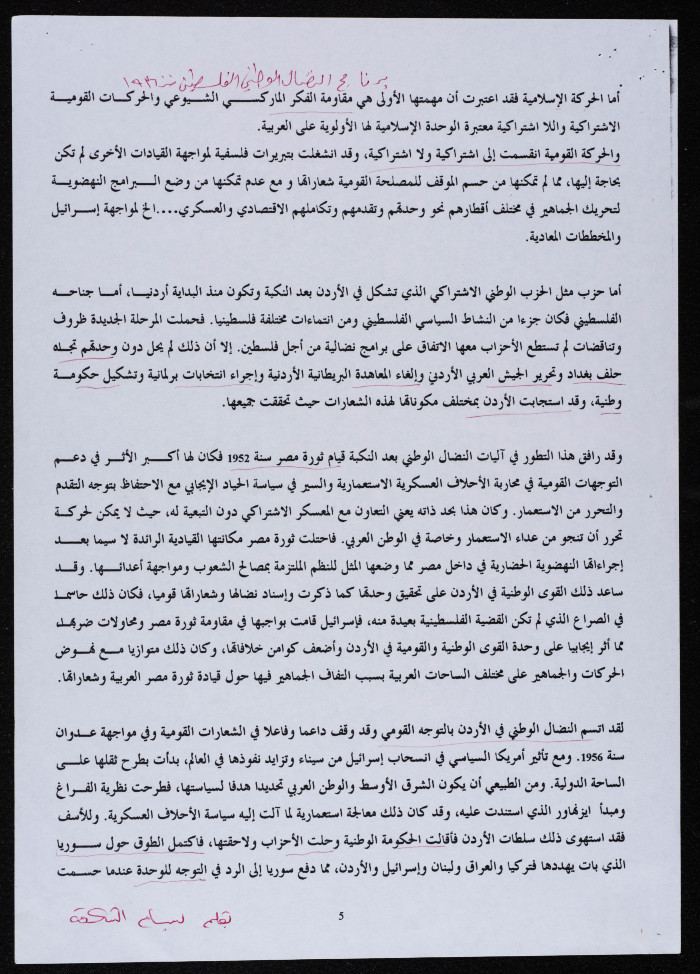 برنامج النضال الوطني الفلسطيني منذ ١٩٣٦
أما الحركة الإسلامية فقد اعتبرت أن مهمتها الأولى هي مقاومة الفكر الماركسي الشيوعي والحركات القومية
الاشتراكية واللا اشتراكية معتبرة الوحدة الإسلامية لها الأولوية على العربية.
والحركة القومية انقسمت إلى اشتراكية ولا اشتراكية، وقد انشغلت بتبريرات فلسفية لمواجهة القيادات الأخرى لم تكن
بحاجة إليها، مما لم تمكنها من حسم الموقف للمصلحة القومية شعاراتها و مع عدم تمكنها من وضع البرامج النهضوية
لتحريك الجماهير في مختلف أقطارهم نحو وحدتهم وتقدمهم وتكاملهم الاقتصادي والعسكري....الخ لمواجهة إسرائيل
والمخططات المعادية.
أما حزب مثل الحزب الوطني الاشتراكي الذي تشكل في الأردن بعد النكبة وتكون منذ البداية أردنيا، أما جناحه
الفلسطيني فكان جزءا من النشاط السياسي الفلسطيني ومن انتماءات مختلفة فلسطينيا. فحملت المرحلة الجديدة ظروف
وتناقضات لم تستطع الأحزاب معها الاتفاق على برامج نضالية من أجل فلسطين. إلا أن ذلك لم يحل دون وحدتهم تجاه
حلف بغداد وتحرير الجيش العربي الأردني وإلغاء المعاهدة البريطانية الأردنية وإجراء انتخابات برلمانية وتشكيل حكومة
وطنية، وقد استجابت الأردن بمختلف مكوناتها لهذه الشعارات حيث تحققت جميعها.
وقد رافق هذا التطور في آليات النضال الوطني بعد النكبة قيام ثورة مصر سنة 1952 فكان لها أكبر الأثر في دعم
التوجهات القومية في محاربة الأحلاف العسكرية الاستعمارية والسير في سياسة الحياد الإيجابي مع الاحتفاظ بتوجه التقدم
والتحرر من الاستعمار. وكان هذا بحد ذاته يعني التعاون مع المعسكر الاشتراكي دون التبعية له، حيث لا يمكن لحركة
تحرر أن تنجو من عداء الاستعمار وخاصة في الوطن العربي. فاحتلت ثورة مصر مكانتها القيادية الرائدة لا سيما بعد
إجراءاتها النهضوية الحضارية في داخل مصر مما وضعها المثل للنظم الملتزمة بمصالح الشعوب ومواجهة أعدائها. وقد
ساعد ذلك القوى الوطنية في الأردن على تحقيق وحدتها كما ذكرت وإسناد نضالها وشعاراتها قوميا، فكان ذلك حاسما
في الصراع الذي لم تكن القضية الفلسطينية بعيدة منه، فإسرائيل قامت بواجبها في مقاومة ثورة مصر ومحاولات ضربها
مما أثر إيجابيا على وحدة القوى الوطنية والقومية في الأردن وأضعف كوامن خلافاتها، وكان ذلك متوازيا مع نهوض
الحركات والجماهير على مختلف الساحات العربية بسبب التفاف الجماهير فيها حول قيادة ثورة مصر العربية وشعاراتها.
لقد اتسم النضال الوطني في الأردن بالتوجه القومي وقد وقف داعما وفاعلا في الشعارات القومية وفي مواجهة عدوان
سنة 1956. ومع تأثير أمريكا السياسي في انسحاب إسرائيل من سيناء وتزايد نفوذها في العالم، بدأت بطرح ثقلها على
الساحة الدولية. ومن الطبيعي أن يكون الشرق الأوسط والوطن العربي تحديدا هدفا لسياستها، فطرحت نظرية الفراغ
ومبدأ ايزنهاور الذي استندت عليه، وقد كان ذلك معالجة استعمارية لما آلت إليه سياسة الأحلاف العسكرية. وللأسف
فقد استهوى ذلك سلطات الأردن فأقالت الحكومة الوطنية وحلت الأحزاب ولاحقتها، فاكتمل الطوق حول سوريا
الذي بات يهددها فتركيا والعراق ولبنان وإسرائيل والأردن، مما دفع سوريا إلى الرد في التوجه للوحدة عندما حسمت
5
بقلم بسام الشكعة